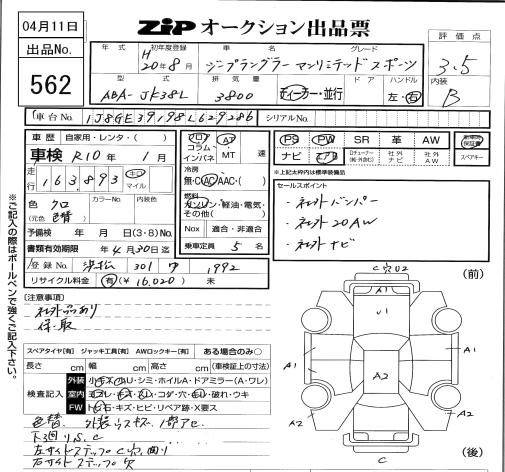 04月11日
ZIP オークション出品票
出品No.
562
年式
初年度登録
車名
グレード
H 20年8月
ジープラングラー アンリミテッド スポーツ
評価点
3.5
内装
B
型式
排気量
ドア
ハンドル
ABA-JK38L
3800
ディーラー・並行
左・右
車台No.
1J8GE39198L629286
シリアルNo.
車歴 自家用・レンタ・( )
車検 R10年 1月
走行 163,893 キロ マイル
色 クロ
(元色)
カラーNo.
内装色
予備検 年 月 日(3・8)No.
書類有効期限 年 4月30日迄
登録No. 浜松 301 1992
リサイクル料金 有(¥16.020) 未
フロア
コラム
インパネ
AT
MT
速
冷房
無・AC・AAC・( )
燃料
ガソリン・軽油・電気・
その他( )
Nox 適合・非適合
乗車定員 5 名
PS PW SR 革 AW
ナビ エアB
社外ナビ
社外AW
新車時保証書
スペアキー
*上記太枠内は標準装備品
セールスポイント
・社外バンパー
・社外20AW
・社外ナビ
※ご記入の際はボールペンで強くご記入下さい。
注意事項
社外品あり
保・取
スペアタイヤ[有] ジャッキ工具[有] AWロックキー[有] ある場合のみ○
長さ cm 幅 cm 高さ cm (車検証上の寸法)
検査記入
外装 小キズ・凹・シミ・ホイルA・ドアミラー(A・ワレ)
室内 ヨゴレ・キズ・スレ・コゲ・穴・ハガレ・破れ・ウキ
FW トビ石・キズ・ヒビ・リペア跡・X要ス
色替 外装
下回りS.C
左サイドステップC穴
右サイドステップ穴
(前)
C穴U2
A1
U1
A1
A1
A2
A2
A2
C
(後)